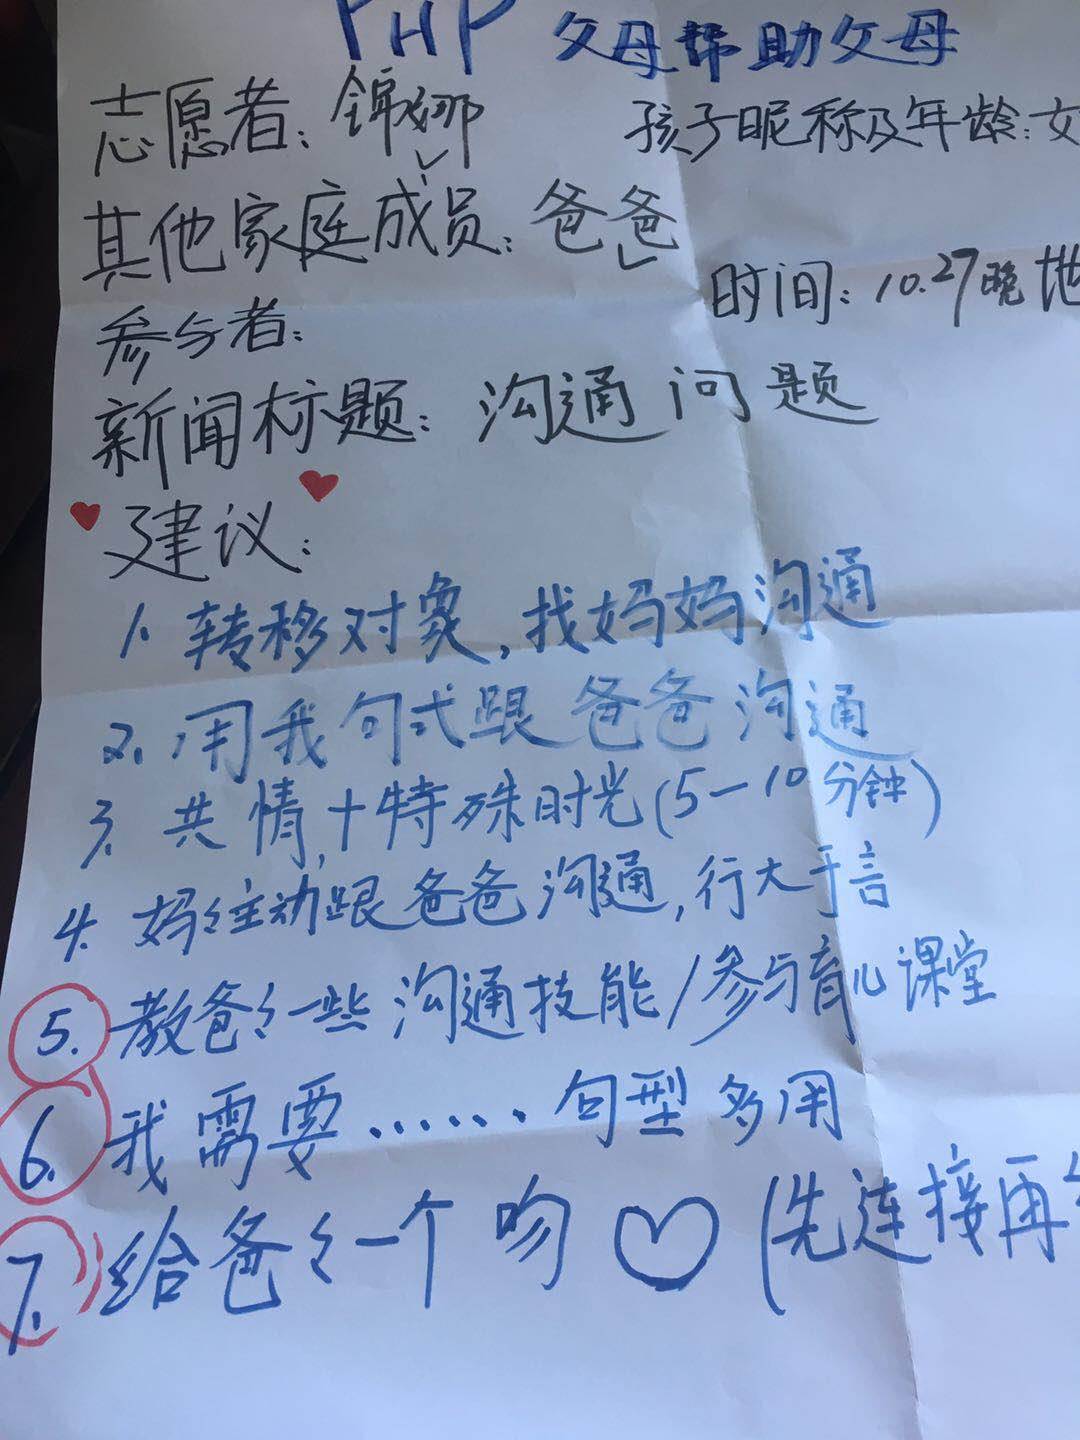 PHP 父母帮助父母
志愿者: 锦娜 孩子昵称及年龄: 女
其他家庭成员: 爸爸
时间: 10.27晚 地
参与者:
新闻标题: 沟通问题
建议:
1. 转移对象, 找妈妈沟通
2. 用我句式跟爸爸沟通
3. 共情, 十特殊时光(5—10分钟)
4. 妈々主动跟爸爸沟通, 行大于言
5. 教爸々一些沟通技能/参与育儿课堂
6. 我需要...... 句型多用
7. 给爸々一个吻♡(先连接再